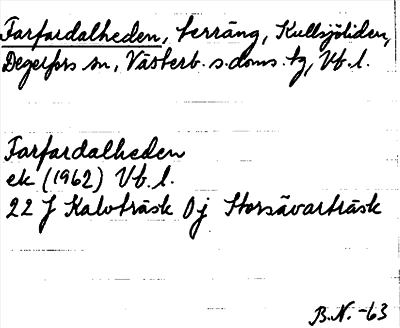 Farfardalheden, terräng, Kullsjöliden,
Degerfors sn, Västerb. s. doms. tg, Vb. l.
Farfardalheden
ek (1962) Vb. l.
22 J Kalvträsk 0j Storsävarträsk
B.N. -63